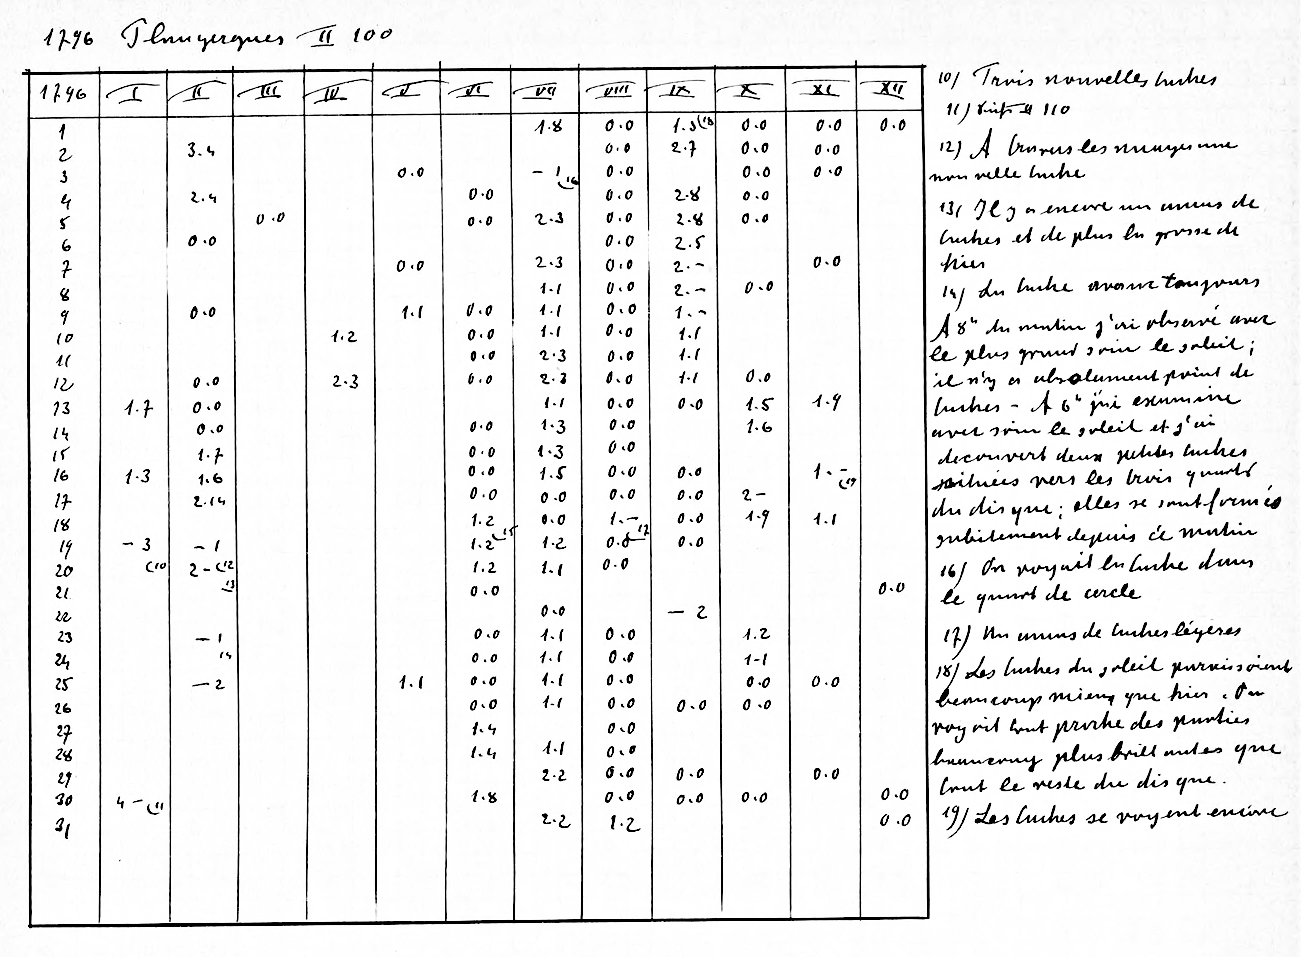 1796 Flaugergues II 100
1796 I II III IV V VI VII VIII IX X XI XII
1 1.8 0.0 1.3(18 0.0 0.0 0.0
2 3.4 0.0 2.7 0.0 0.0
3 0.0 – 1(16 0.0 0.0 0.0
4 2.4 0.0 0.0 2.8 0.0
5 0.0 0.0 2.3 0.0 2.8 0.0
6 0.0 0.0 2.5
7 0.0 2.3 0.0 2.– 0.0
8 1.1 0.0 2.– 0.0
9 0.0 1.1 0.0 1.1 0.0 1.–
10 1.2 0.0 1.1 0.0 1.1
11 0.0 2.3 0.0 1.1
12 0.0 2.3 0.0 2.3 0.0 1.1 0.0
13 1.7 0.0 1.1 0.0 0.0 1.5 1.9
14 0.0 0.0 1.3 0.0 1.6
15 1.7 0.0 1.3 0.0
16 1.3 1.6 0.0 1.5 0.0 0.0 1.–(19
17 2.14 0.0 0.0 0.0 0.0 2–
18 1.2 0.0 1.– 0.0 1.9 1.1
19 – 3 – 1 1.2(15 1.2 0.0(17 0.0
20 (10 2–(12 1.2 1.1 0.0
21 (13 0.0 0.0
22 0.0 – 2
23 – 1 0.0 1.1 0.0 1.2
24 14 0.0 1.1 0.0 1-1
25 – 2 1.1 0.0 1.1 0.0 0.0 0.0
26 0.0 1.1 0.0 0.0 0.0
27 1.4 0.0
28 1.4 1.1 0.0
29 2.2 0.0 0.0 0.0
30 4 –(11 1.8 0.0 0.0 0.0 0.0
31 2.2 1.2 0.0
10) Trois nouvelles taches
11) II 110
12) A travers les nuages une
nouvelle tache
13) Il y a encore un amas de
taches et de plus la grosse de
hier
14) La tache avance toujours
A 8h du matin j'ai observé avec
le plus grand soin le soleil;
il n'y a absolument point de
taches – A 6h j'ai examiné
avec soin le soleil et j'ai
decouvert deux petites taches
situées vers les trois quarts
du disque; elles se sont formés
subitement depuis ce matin
16) On voyait la tache dans
le quart de cercle
17) Un amas de taches légères
18) Les taches du soleil paraissaient
beaucoup mieux que hier. On
voyait tout proche des parties
beaucoup plus brillantes que
tout le reste du disque.
19) Les taches se voyent encore